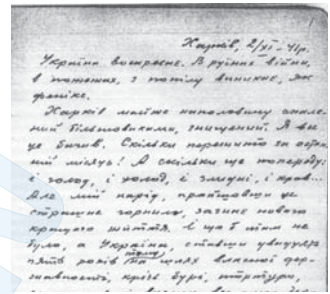 1
Харків, 2/XI-41р.
Україна воскресне. В руїнах війни,
в пожежах, з попілу виникне, як
фенікс.
Харків майже наполовину спале-
ний більшовиками, знищений. Я все
це бачив. Скільки пережито за остан-
ній місяць! А скільки ще попереду:
і голод, і холод, і злидні, і кров...
Але мій народ, пройшовши це
страшне горнило, зазнає нового
кращого життя. І щоб там не
було, а Україна, ставши двадцять
п'ять років тому на шлях власної дер-
жавности, крізь бурі, тортури,